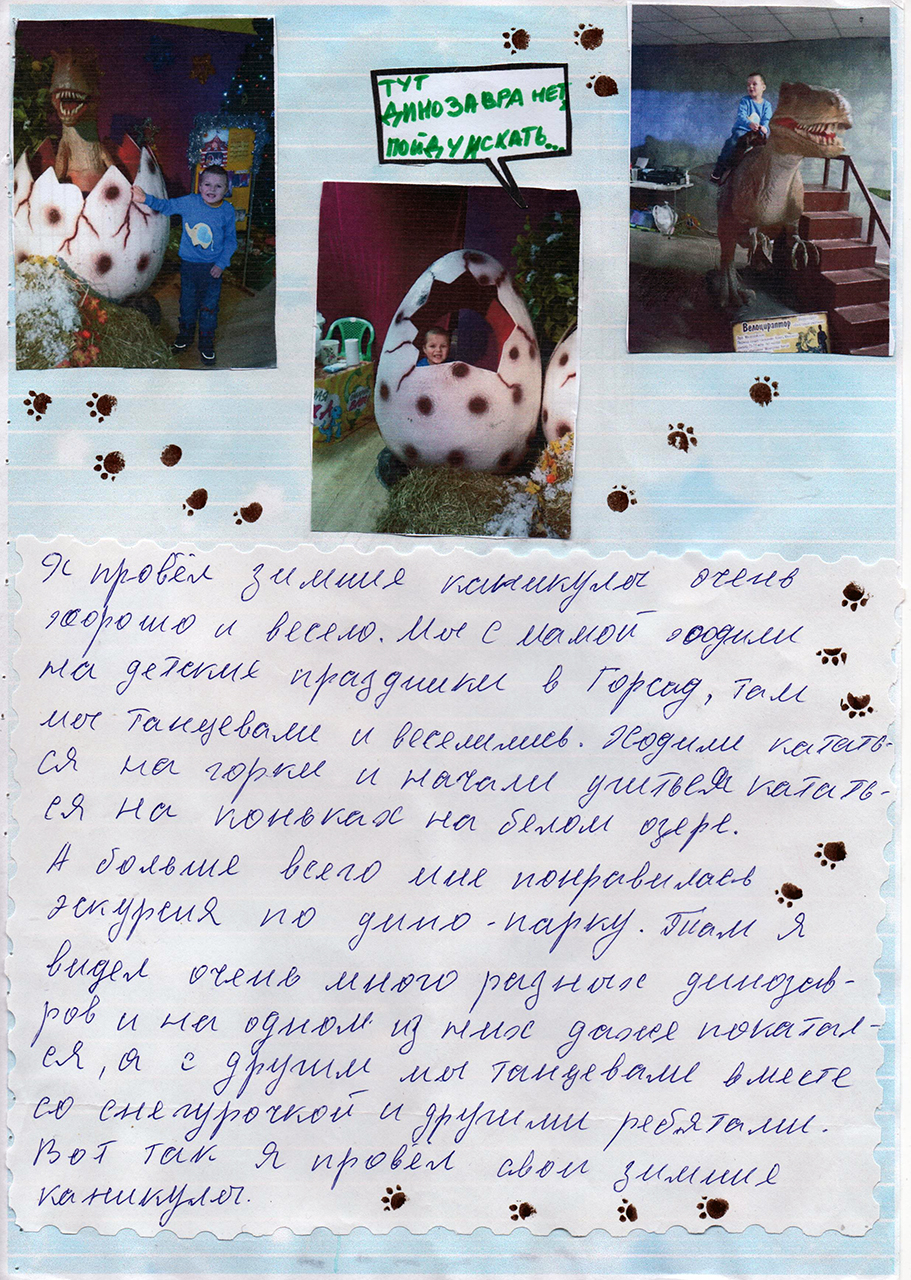 ТУТ
ДИНОЗАВРА НЕТ,
ПОЙДУ ИСКАТЬ...
Велоцираптор
Я провёл зимние каникулы очень
хорошо и весело. Мы с мамой ходили
на детские праздники в Горсад, там
мы танцевали и веселились. Ходили катать-
ся на горки и начали учиться катать-
ся на коньках на белом озере.
А больше всего мне понравилась
экскурсия по дино-парку. Там я
видел очень много разных динозав-
ров и на одном из них даже покатал-
ся, а с другим мы танцевали вместе
со снегурочкой и другими ребятами.
Вот так я провёл свои зимние
каникулы.